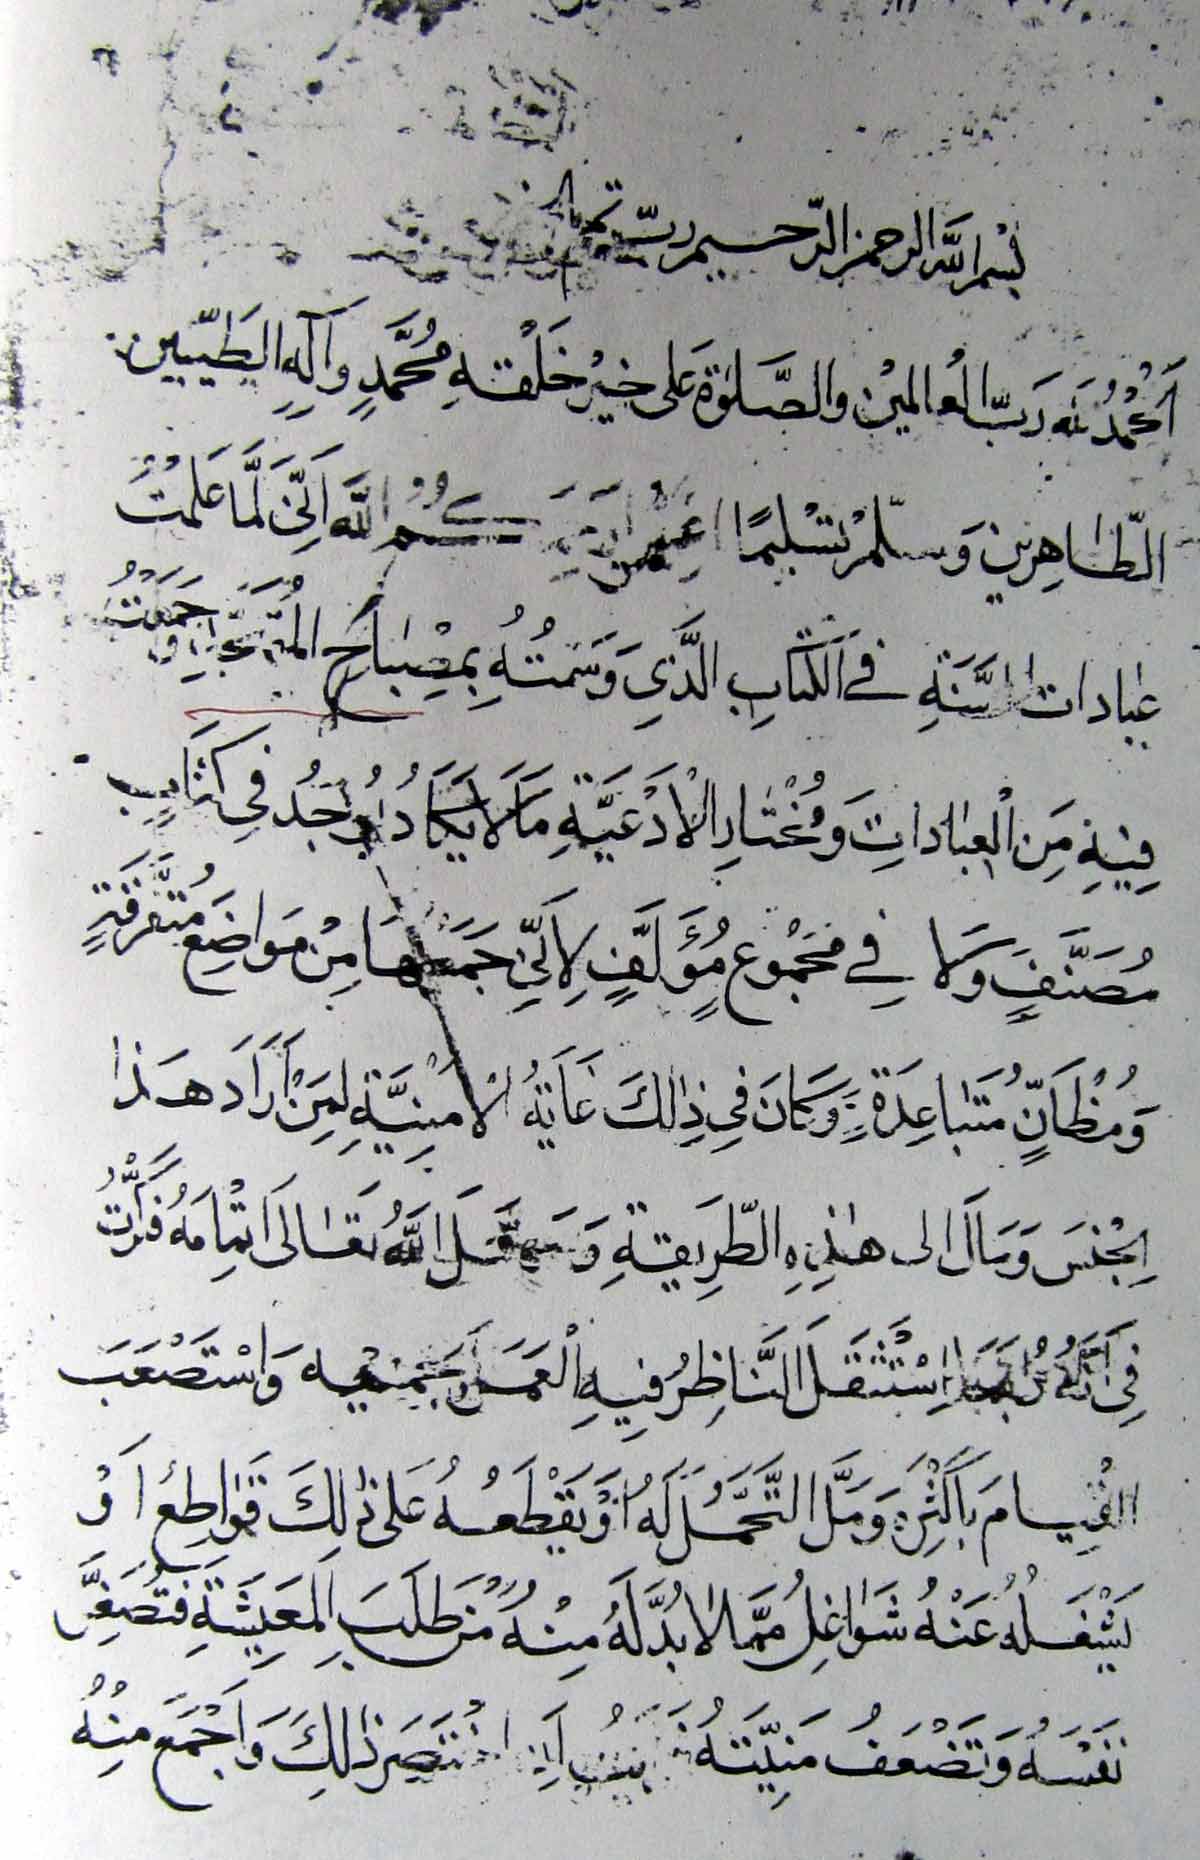 بسم الله الرحمن الرحيم رب
اَلْحَمْدُ لله رَبِّ الْعالمين والصَّلوٰة عَلى خيرْ خَلْقه مُحَمَّدٍ وَآلِهِ الطَيّبين
الطّاهِرين وَسلّمْ تسْليمًا كُمُ اللّٰه اَنّى لَمَّا عَلمْتُ
عبادات السَّنَةِ في الكتابِ الذَّي وَسَمتُهُ بِمِصْباحِ المُتَهَجِّدِ وَجَمَعْتُ
فيهِ مِنَ الْعباداتِ وَمُخْتارِ الْاَدْعيَّةِ مَالا يَكادُ يُوجَدُ في كتابٍ
مُصَنَّفٍ وَلا في مَجْمُوعٍ مُؤَلَّفٍ لِاَنّي جَمَعْتُها مِنْ مَواضِعَ مُتَفَرّقةٍ
وَمُظَانٍّ مُتَباعِدَةٍ وَكانَ في ذٰلكَ غايَةُ الْاُمْنِيَّةِ لِمَنْ اَرَادَ هذا
الجْنسَ وَمالَ الى هٰذِهِ الطّرِيقَةِ وَسَهَّلَ اللّٰهُ تعَالىٰ اتْمامَهُ فكَّرْتُ
في اَنَّهُ رُبَّمَا اِسْتَثْقَلَ النَّاظِرُ فيهِ الْعَمَلَ بجَميعه وَاسْتَصْعَبَ
القْيامَ بِاَكْثرِه وَمَلَّ التَّحَمُّلَ لَهُ اَوْ يَقْطَعهُ عَلى ذٰلِكَ قَواطِعُ اَوْ
يَشْغَلُهُ عَنْهُ شَواغِلُ مِمَّا لا بُدَّ لَهُ مِنْهُ مْن طَلَبِ الْمَعيشَةِ فتُضْعِفُ
نَفْسهُ وَتَضْعَفُ مَنيّتهُ اَنْ اخْتَصِرَ ذٰلِكَ وَاَجْمَعَ مِنْهُ